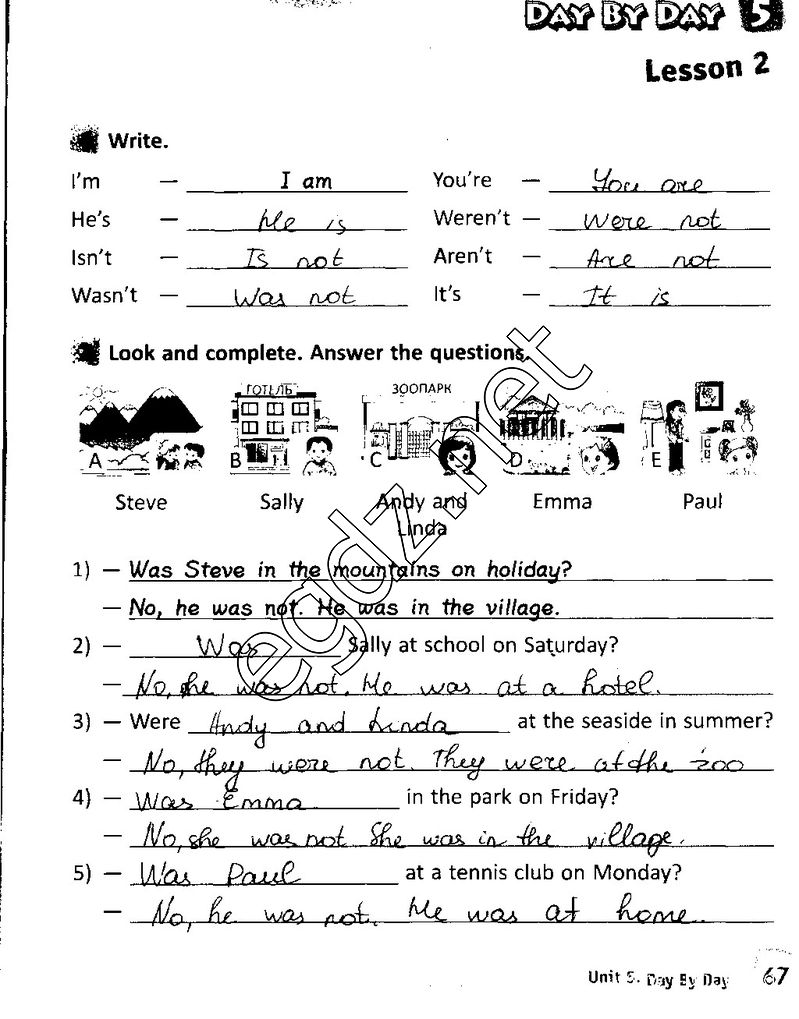 DAY BY DAY 5
Lesson 2
Write.
I'm — I am You're — You are
He's — He is Weren't — Were not
Isn't — Is not Aren't — Are not
Wasn't — Was not It's — It is
Look and complete. Answer the questions.
ГОТЕЛЬ ЗООПАРК
A B C D E
Steve Sally Andy and Linda Emma Paul
1) — Was Steve in the mountains on holiday?
— No, he was not. He was in the village.
2) — Was Sally at school on Saturday?
— No, she was not. He was at a hotel.
3) — Were Andy and Linda at the seaside in summer?
— No, they were not. They were at the zoo
4) — Was Emma in the park on Friday?
— No, she was not She was in the village.
5) — Was Paul at a tennis club on Monday?
— No, he was not. He was at home.
Unit 5. Day By Day 67
egdz.net